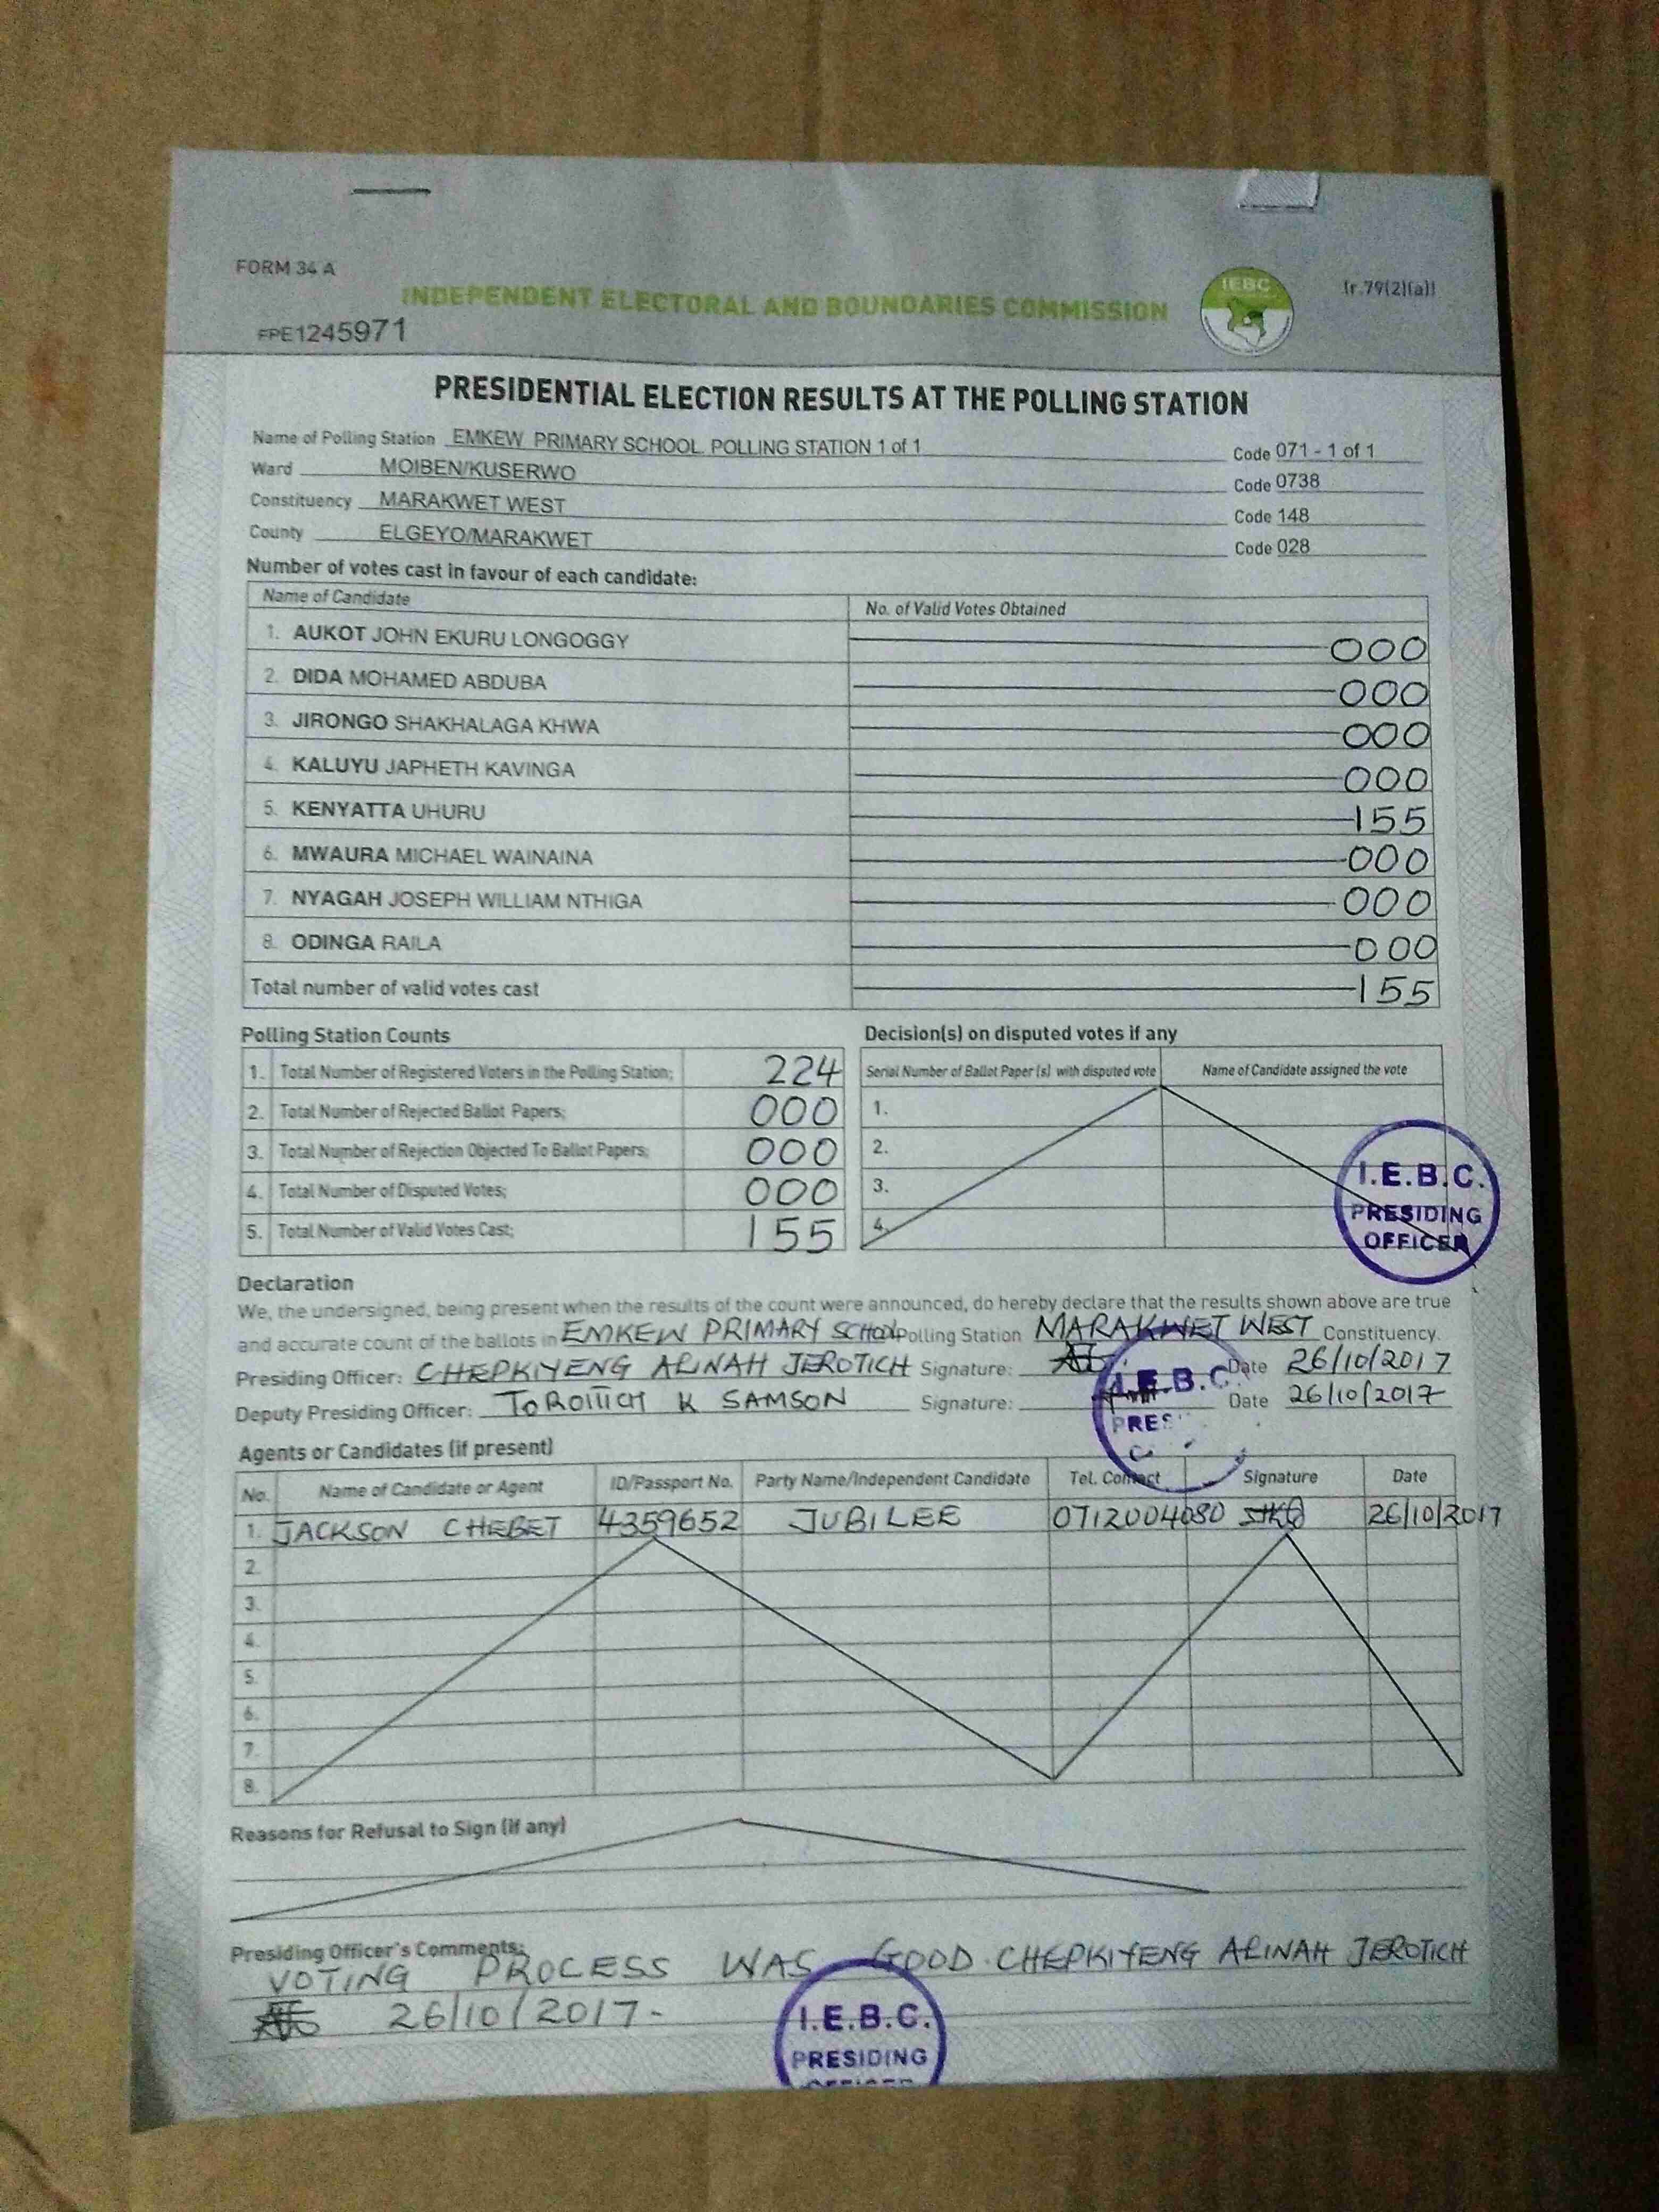 FORM 34 A
INDEPENDENT ELECTORAL AND BOUNDARIES COMMISSION
IEBC
(r.79(2)(a))
FPE1245971
PRESIDENTIAL ELECTION RESULTS AT THE POLLING STATION
Name of Polling Station EMKEW PRIMARY SCHOOL POLLING STATION 1 of 1 Code 071 - 1 of 1
Ward MOIBEN/KUSERWO Code 0738
Constituency MARAKWET WEST Code 148
County ELGEYO/MARAKWET Code 028
Number of votes cast in favour of each candidate:
Name of Candidate No. of Valid Votes Obtained
1. AUKOT JOHN EKURU LONGOGGY 000
2. DIDA MOHAMED ABDUBA 000
3. JIRONGO SHAKHALAGA KHWA 000
4. KALUYU JAPHETH KAVINGA 000
5. KENYATTA UHURU 155
6. MWAURA MICHAEL WAINAINA 000
7. NYAGAH JOSEPH WILLIAM NTHIGA 000
8. ODINGA RAILA 000
Total number of valid votes cast 155
Polling Station Counts
1. Total Number of Registered Voters in the Polling Station; 224
2. Total Number of Rejected Ballot Papers; 000
3. Total Number of Rejection Objected To Ballot Papers; 000
4. Total Number of Disputed Votes; 000
5. Total Number of Valid Votes Cast; 155
Decision(s) on disputed votes if any
Serial Number of Ballot Paper (s) with disputed vote Name of Candidate assigned the vote
1.
2.
3.
4.
I.E.B.C.
PRESIDING
OFFICER
Declaration
We, the undersigned, being present when the results of the count were announced, do hereby declare that the results shown above are true
and accurate count of the ballots in EMKEW PRIMARY SCHOOL Polling Station MARAKWET WEST Constituency.
Presiding Officer: CHEPKIYENG ALINAH JEROTICH Signature: Date 26/10/2017
Deputy Presiding Officer: TOROITICH K SAMSON Signature: Date 26/10/2017
I.E.B.C.
PRES
Agents or Candidates (if present)
No. Name of Candidate or Agent ID/Passport No. Party Name/Independent Candidate Tel. Contact Signature Date
1. JACKSON CHEBET 4359652 JUBILEE 0712004080 26/10/2017
2.
3.
4.
5.
6.
7.
8.
Reasons for Refusal to Sign (if any)
Presiding Officer's Comments:
VOTING PROCESS WAS GOOD. CHEPKIYENG ALINAH JEROTICH
26/10/2017-
I.E.B.C.
PRESIDING
OFFICER